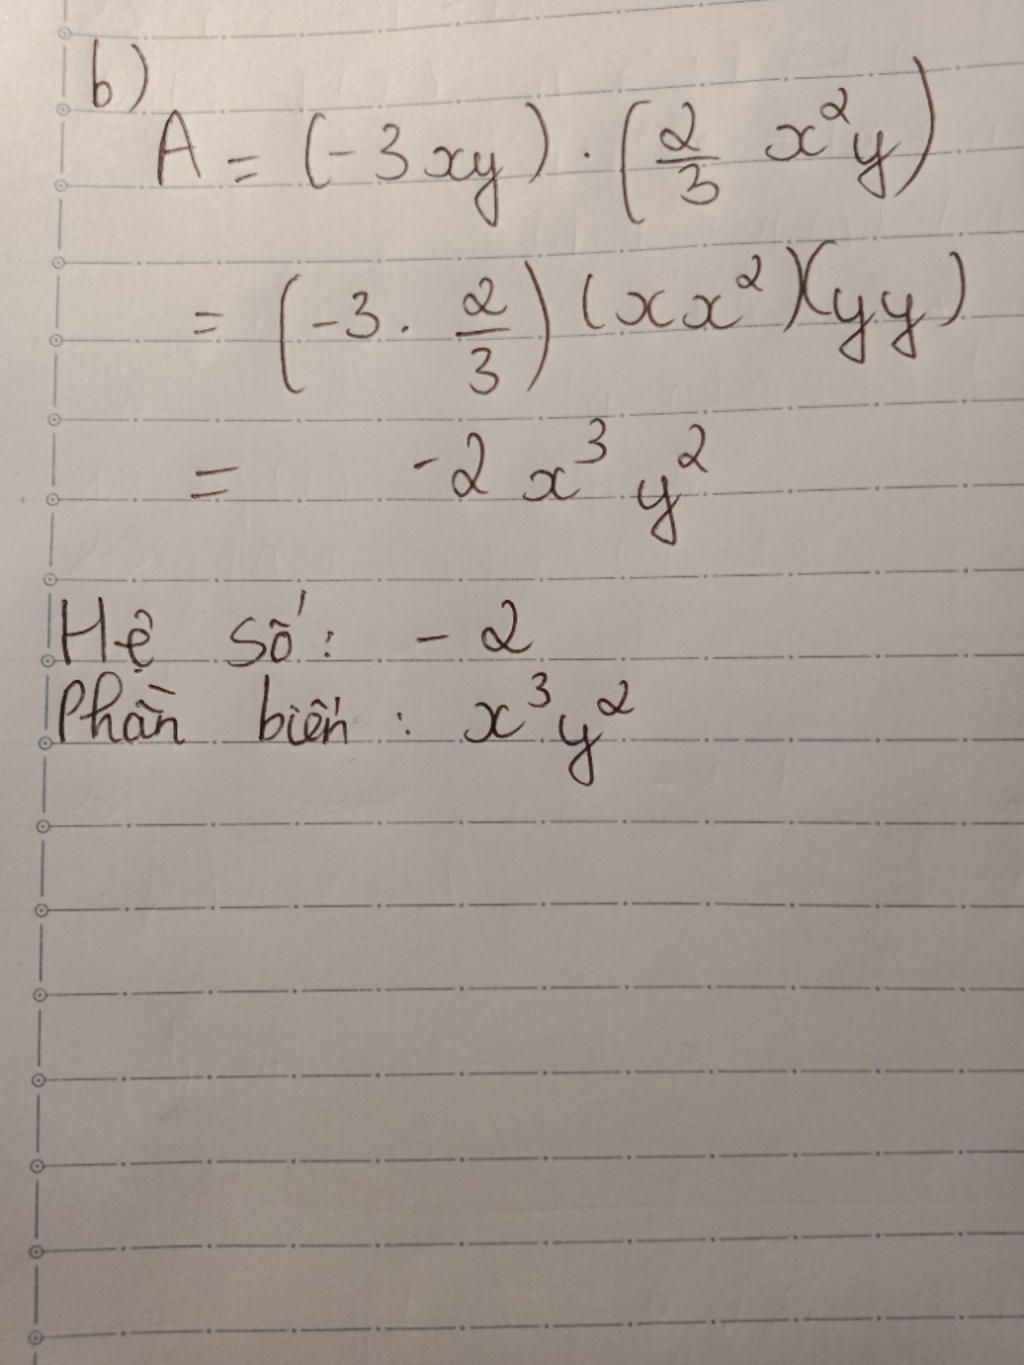 b)
A = (-3xy) . (2/3 x²y)
= (-3 . 2/3) (xx²)(yy)
= -2 x³ y²
Hệ số: -2
Phần biến : x³y²